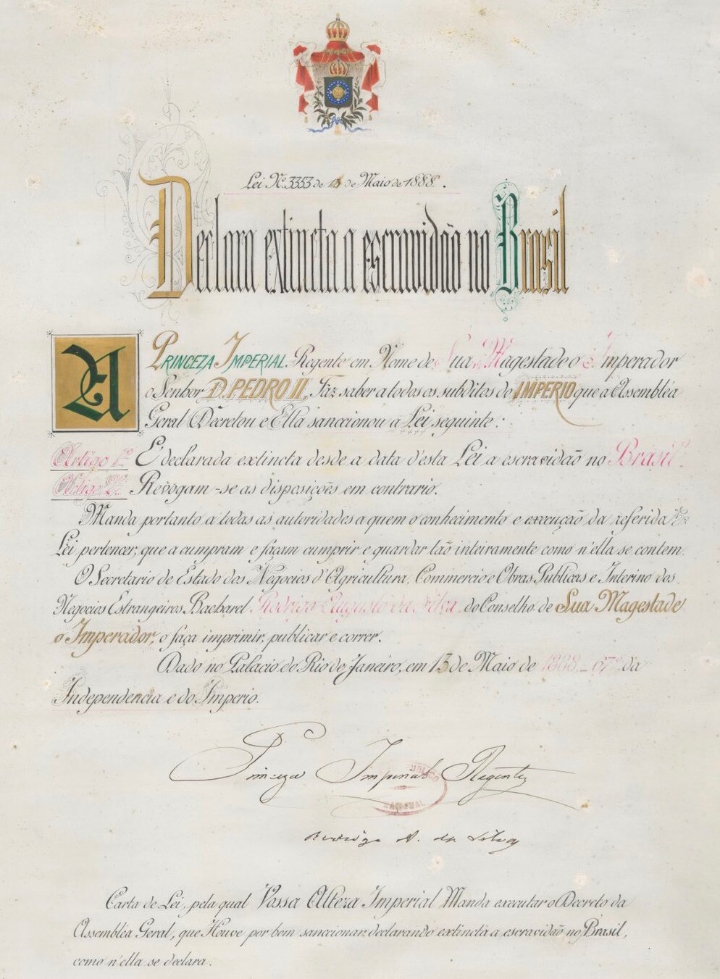 Lei Nº 3353 de 13 de Maio de 1888.
Declara extincta a escravidão no Brasil
A PRINCEZA IMPERIAL Regente em Nome de Sua Magestade o Imperador
o Senhor D. PEDRO II, Faz saber a todos os subditos do IMPERIO que a Assembléa
Geral Decretou e Ella sanccionou a Lei seguinte:
Artigo 1º É declarada extincta desde a data d'esta Lei a escravidão no Brasil.
Artigo 2º Revogam-se as disposições em contrario.
Manda portanto a todas as autoridades a quem o conhecimento e execução da referida
Lei pertencer, que a cumpram e façam cumprir e guardar tão inteiramente como n'ella se contem.
O Secretario de Estado dos Negocios d'Agricultura, Commercio e Obras Publicas e Interino dos
Negocios Estrangeiros Bacharel Rodrigo Augusto da Silva, do Conselho de Sua Magestade
o Imperador, o faça imprimir, publicar e correr.
Dado no Palacio do Rio de Janeiro, em 13 de Maio de 1888 – 67º da
Independencia e do Imperio.
Princeza Imperial Regente
Rodrigo A. da Silva
Carta de Lei, pela qual Vossa Alteza Imperial Manda executar o Decreto da
Assembléa Geral, que Houve por bem sanccionar, declarando extincta a escravidão no Brasil,
como n'ella se declara.